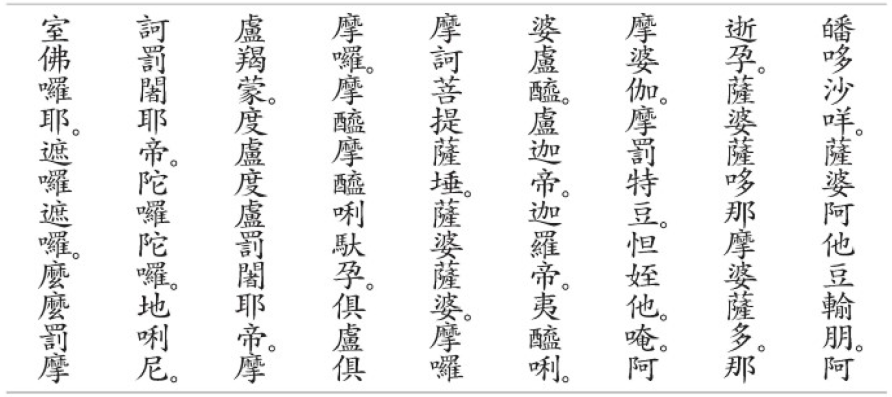 皤哆沙咩。薩婆阿他豆輸朋。阿
逝孕。薩婆薩哆那摩婆薩多。那
摩婆伽。摩罰特豆。怛姪他。唵。阿
婆盧醯。盧迦帝。迦羅帝。夷醯唎。
摩訶菩提薩埵。薩婆薩婆。摩囉
摩囉。摩醯摩醯唎馱孕。俱盧俱
盧羯蒙。度盧度盧罰闍耶帝。摩
訶罰闍耶帝。陀囉陀囉。地唎尼。
室佛囉耶。遮囉遮囉。麼麼罰摩